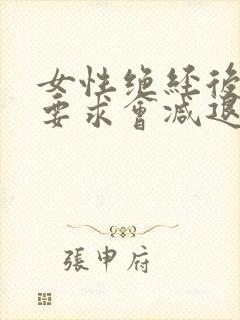 女性绝经後
要求會減退
張申府